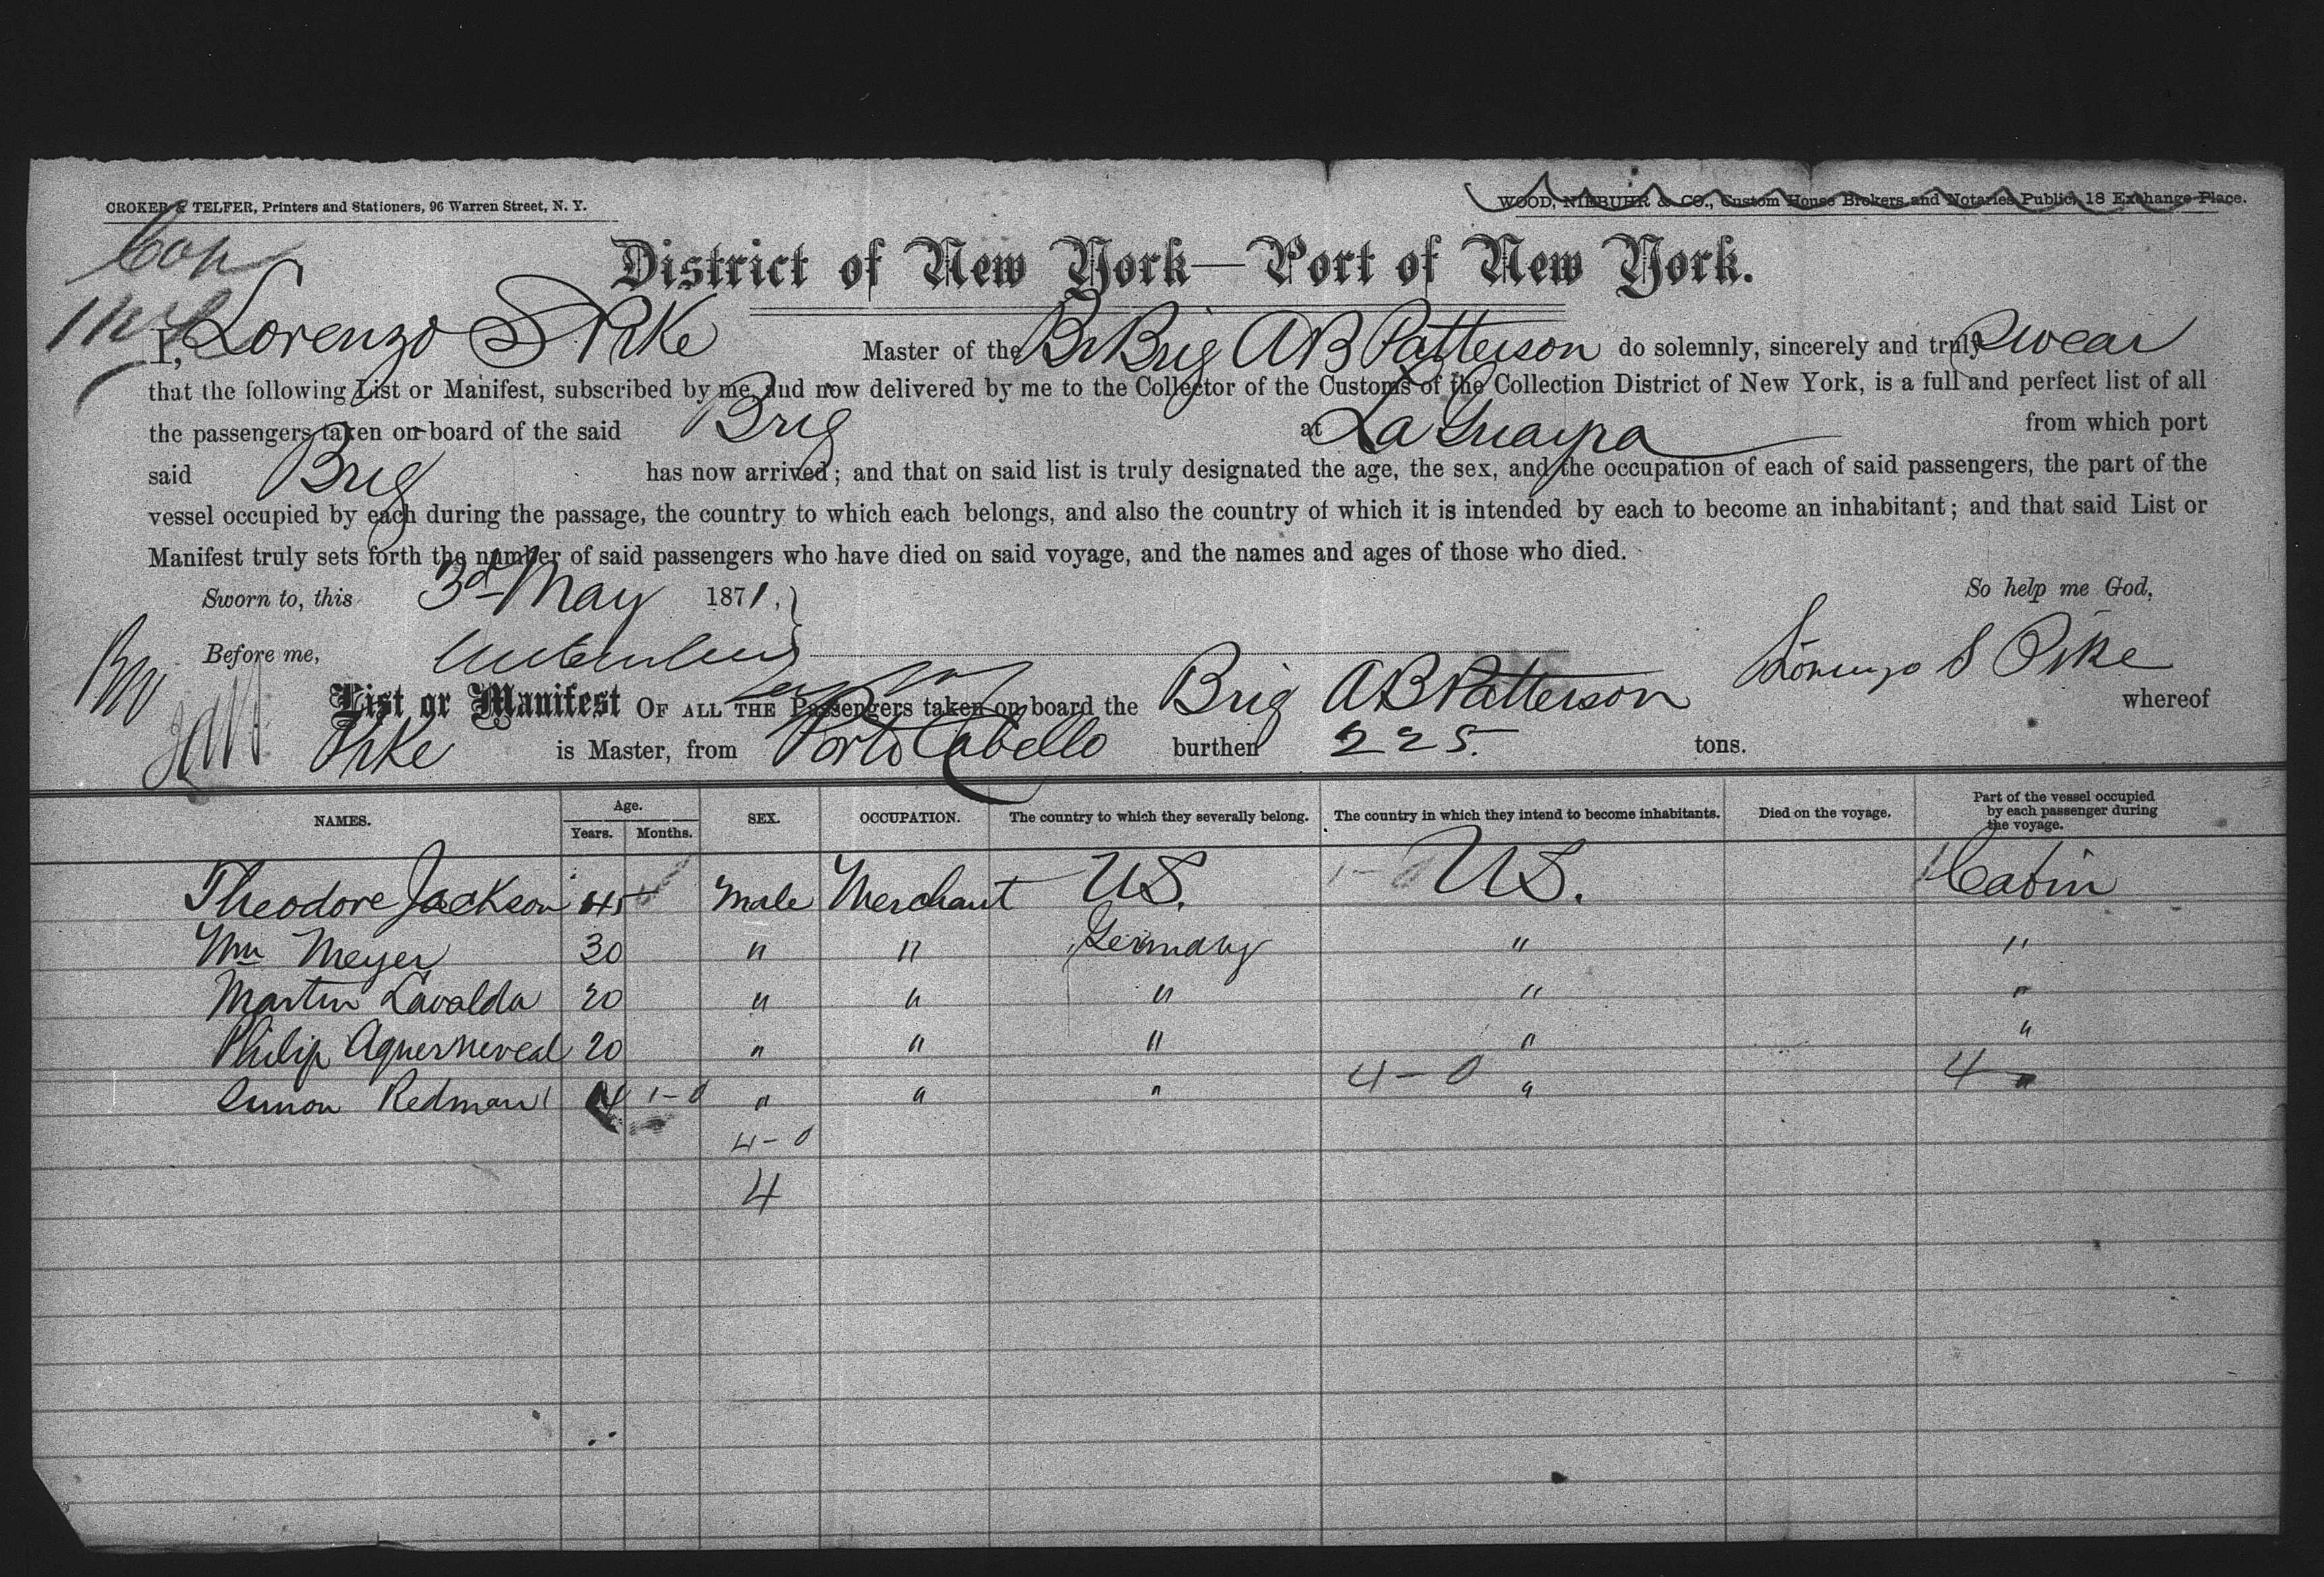 CROKER & TELFER, Printers and Stationers, 96 Warren Street, N. Y.
WOOD, NIEBUHR & CO., Custom House Brokers and Notaries Public, 18 Exchange Place.
District of New York—Port of New York.
I, Lorenzo S Pike Master of the Br Brig A B Patterson do solemnly, sincerely and truly Swear
that the following List or Manifest, subscribed by me, and now delivered by me to the Collector of the Customs of the Collection District of New York, is a full and perfect list of all
the passengers taken on board of the said Brig at La Guayra from which port
said Brig has now arrived; and that on said list is truly designated the age, the sex, and the occupation of each of said passengers, the part of the
vessel occupied by each during the passage, the country to which each belongs, and also the country of which it is intended by each to become an inhabitant; and that said List or
Manifest truly sets forth the number of said passengers who have died on said voyage, and the names and ages of those who died.
Sworn to, this 3d May 1871, So help me God,
Before me, Lorenzo S Pike
List or Manifest OF ALL THE Passengers taken on board the Brig A B Patterson whereof
Pike is Master, from Porto Cabello burthen 225. tons.
NAMES. Age. Years. Months. SEX. OCCUPATION. The country to which they severally belong. The country in which they intend to become inhabitants. Died on the voyage. Part of the vessel occupied by each passenger during the voyage.
Theodore Jackson 45 Male Merchant U.S. 1-0 U.S. 1 Cabin
Wm Meyer 30 " " Germany " "
Martin Lavalda 20 " " " " "
Philip 20 " " " " "
Simon Redman 1-0 " " " 4-0 " 4 "
4-0
4